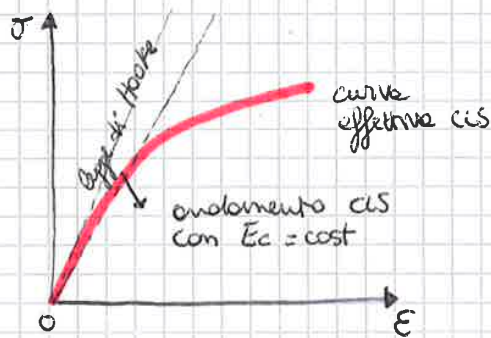 σ
legge di Hooke
curva
effettiva cls
andamento cls
con Ec = cost
0
ε